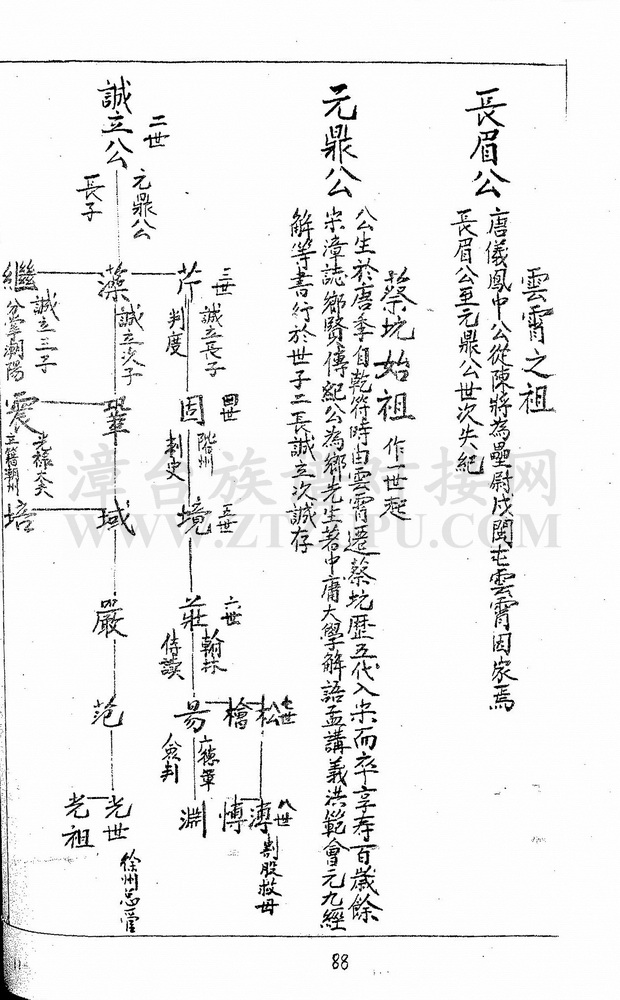 雲霄之祖
長眉公
唐儀鳳中公從陳將為壘尉戍閩屯雲霄因家焉
長眉公至元鼎公世次失紀
蔡坑始祖 作一世起
元鼎公
公生於唐季自乾符時由雲霄遷蔡坑歷五代入宋而卒享存百歲餘
宋漳誌鄉賢傳紀公為鄉先生著中庸大學解語孟講義洪範會元九經
解等書行於世子二長誠立次誠存
二世
誠立公
元鼎公
長子
三世
芹
誠立長子
判度
藻
誠立次子
繼
誠立三子
分掌潮陽
四世
固
階州
刺史
鞏
震
光祿大夫
立籍潮州
五世
境
域
培
六世
莊
翰林
侍讀
嚴
七世
松
檜
易
德軍
僉判
范
八世
溥
割股救母
愽
淵
光世
徐州總管
光祖
漳台族谱对接网
88